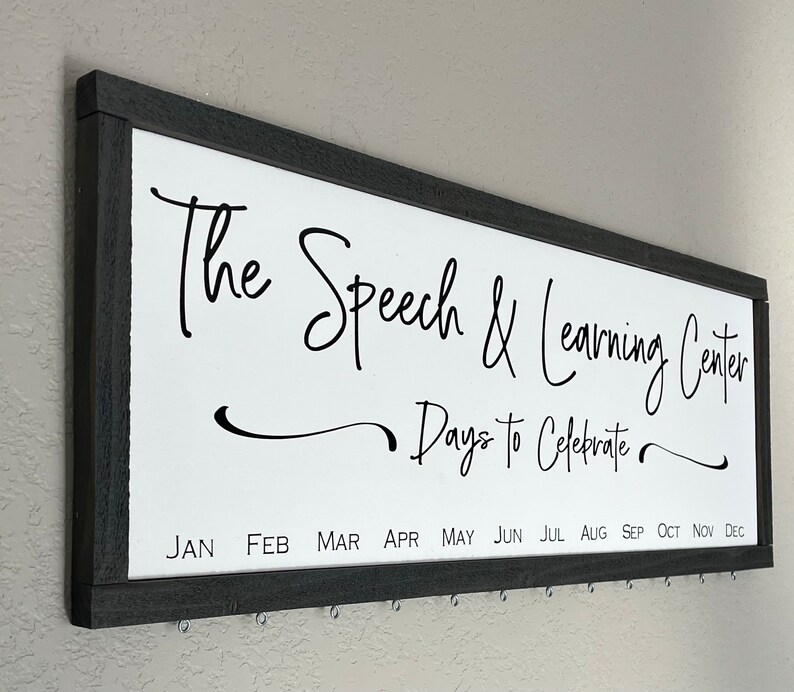 The Speech & Learning Center
Days to Celebrate
JAN FEB MAR APR MAY JUN JUL AUG SEP OCT NOV DEC